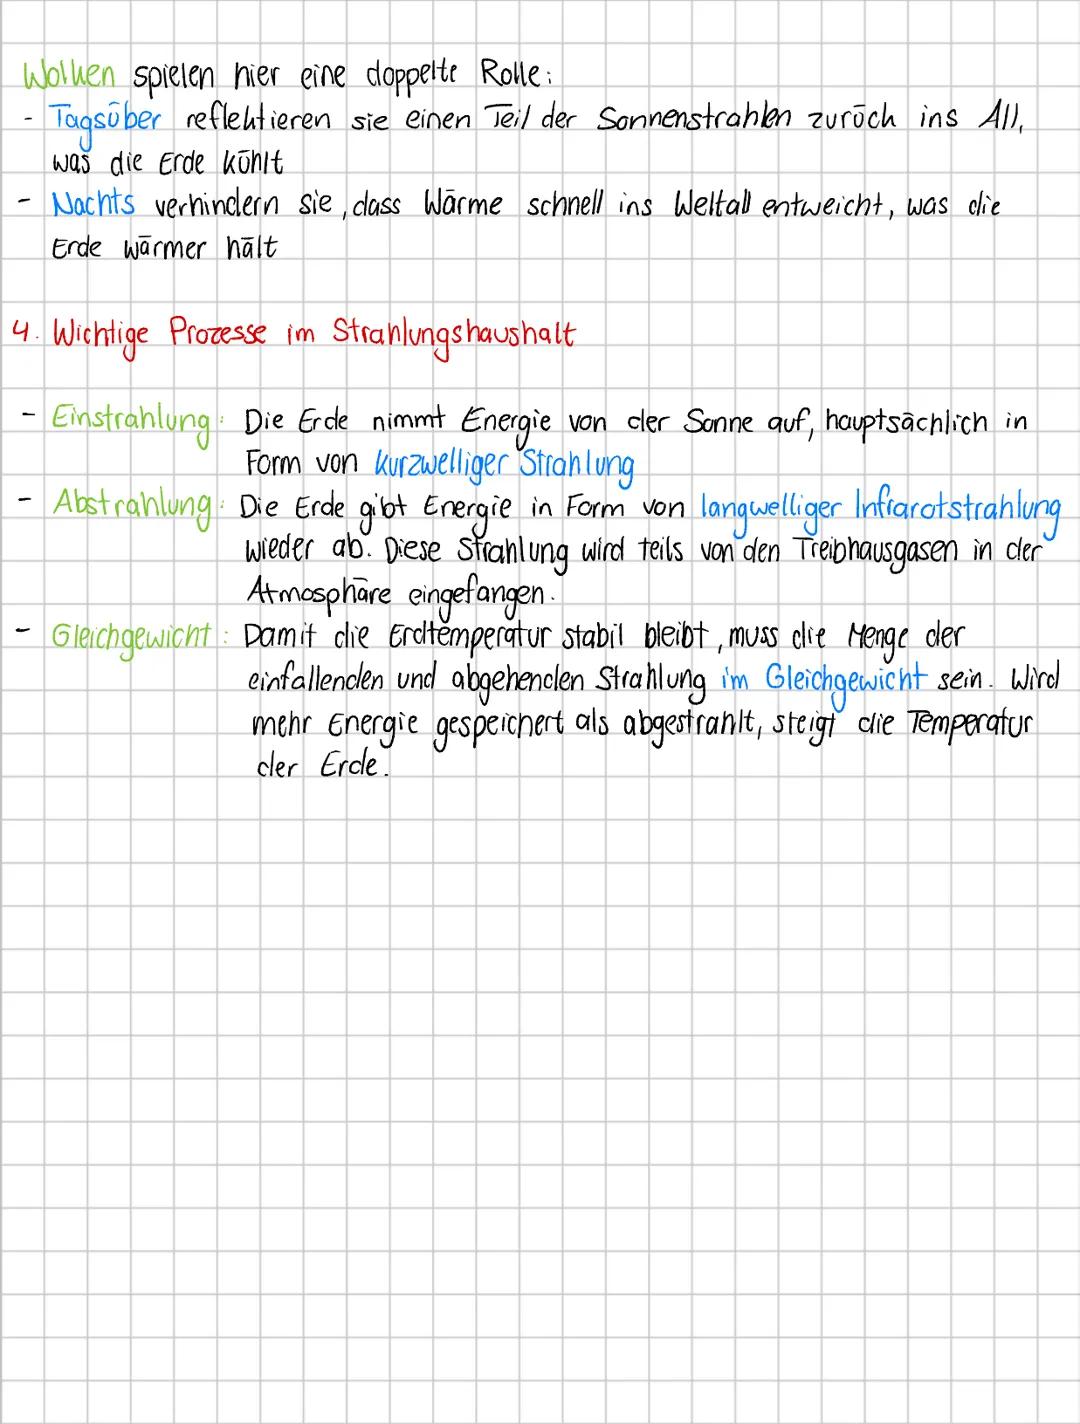 Wolken spielen hier eine doppelte Rolle:
- Tagsüber reflektieren sie einen Teil der Sonnenstrahlen zurück ins All,
was die Erde kühlt
- Nachts verhindern sie, dass Wärme schnell ins Weltall entweicht, was die
Erde wärmer hält
4. Wichtige Prozesse im Strahlungshaushalt
- Einstrahlung: Die Erde nimmt Energie von der Sonne auf, hauptsächlich in
Form von kurzwelliger Strahlung
- Abstrahlung: Die Erde gibt Energie in Form von langwelliger Infrarotstrahlung
wieder ab. Diese Strahlung wird teils von den Treibhausgasen in der
Atmosphäre eingefangen.
- Gleichgewicht: Damit die Erdtemperatur stabil bleibt, muss die Menge der
einfallenden und abgehenden Strahlung im Gleichgewicht sein. Wird
mehr Energie gespeichert als abgestrahlt, steigt die Temperatur
der Erde.